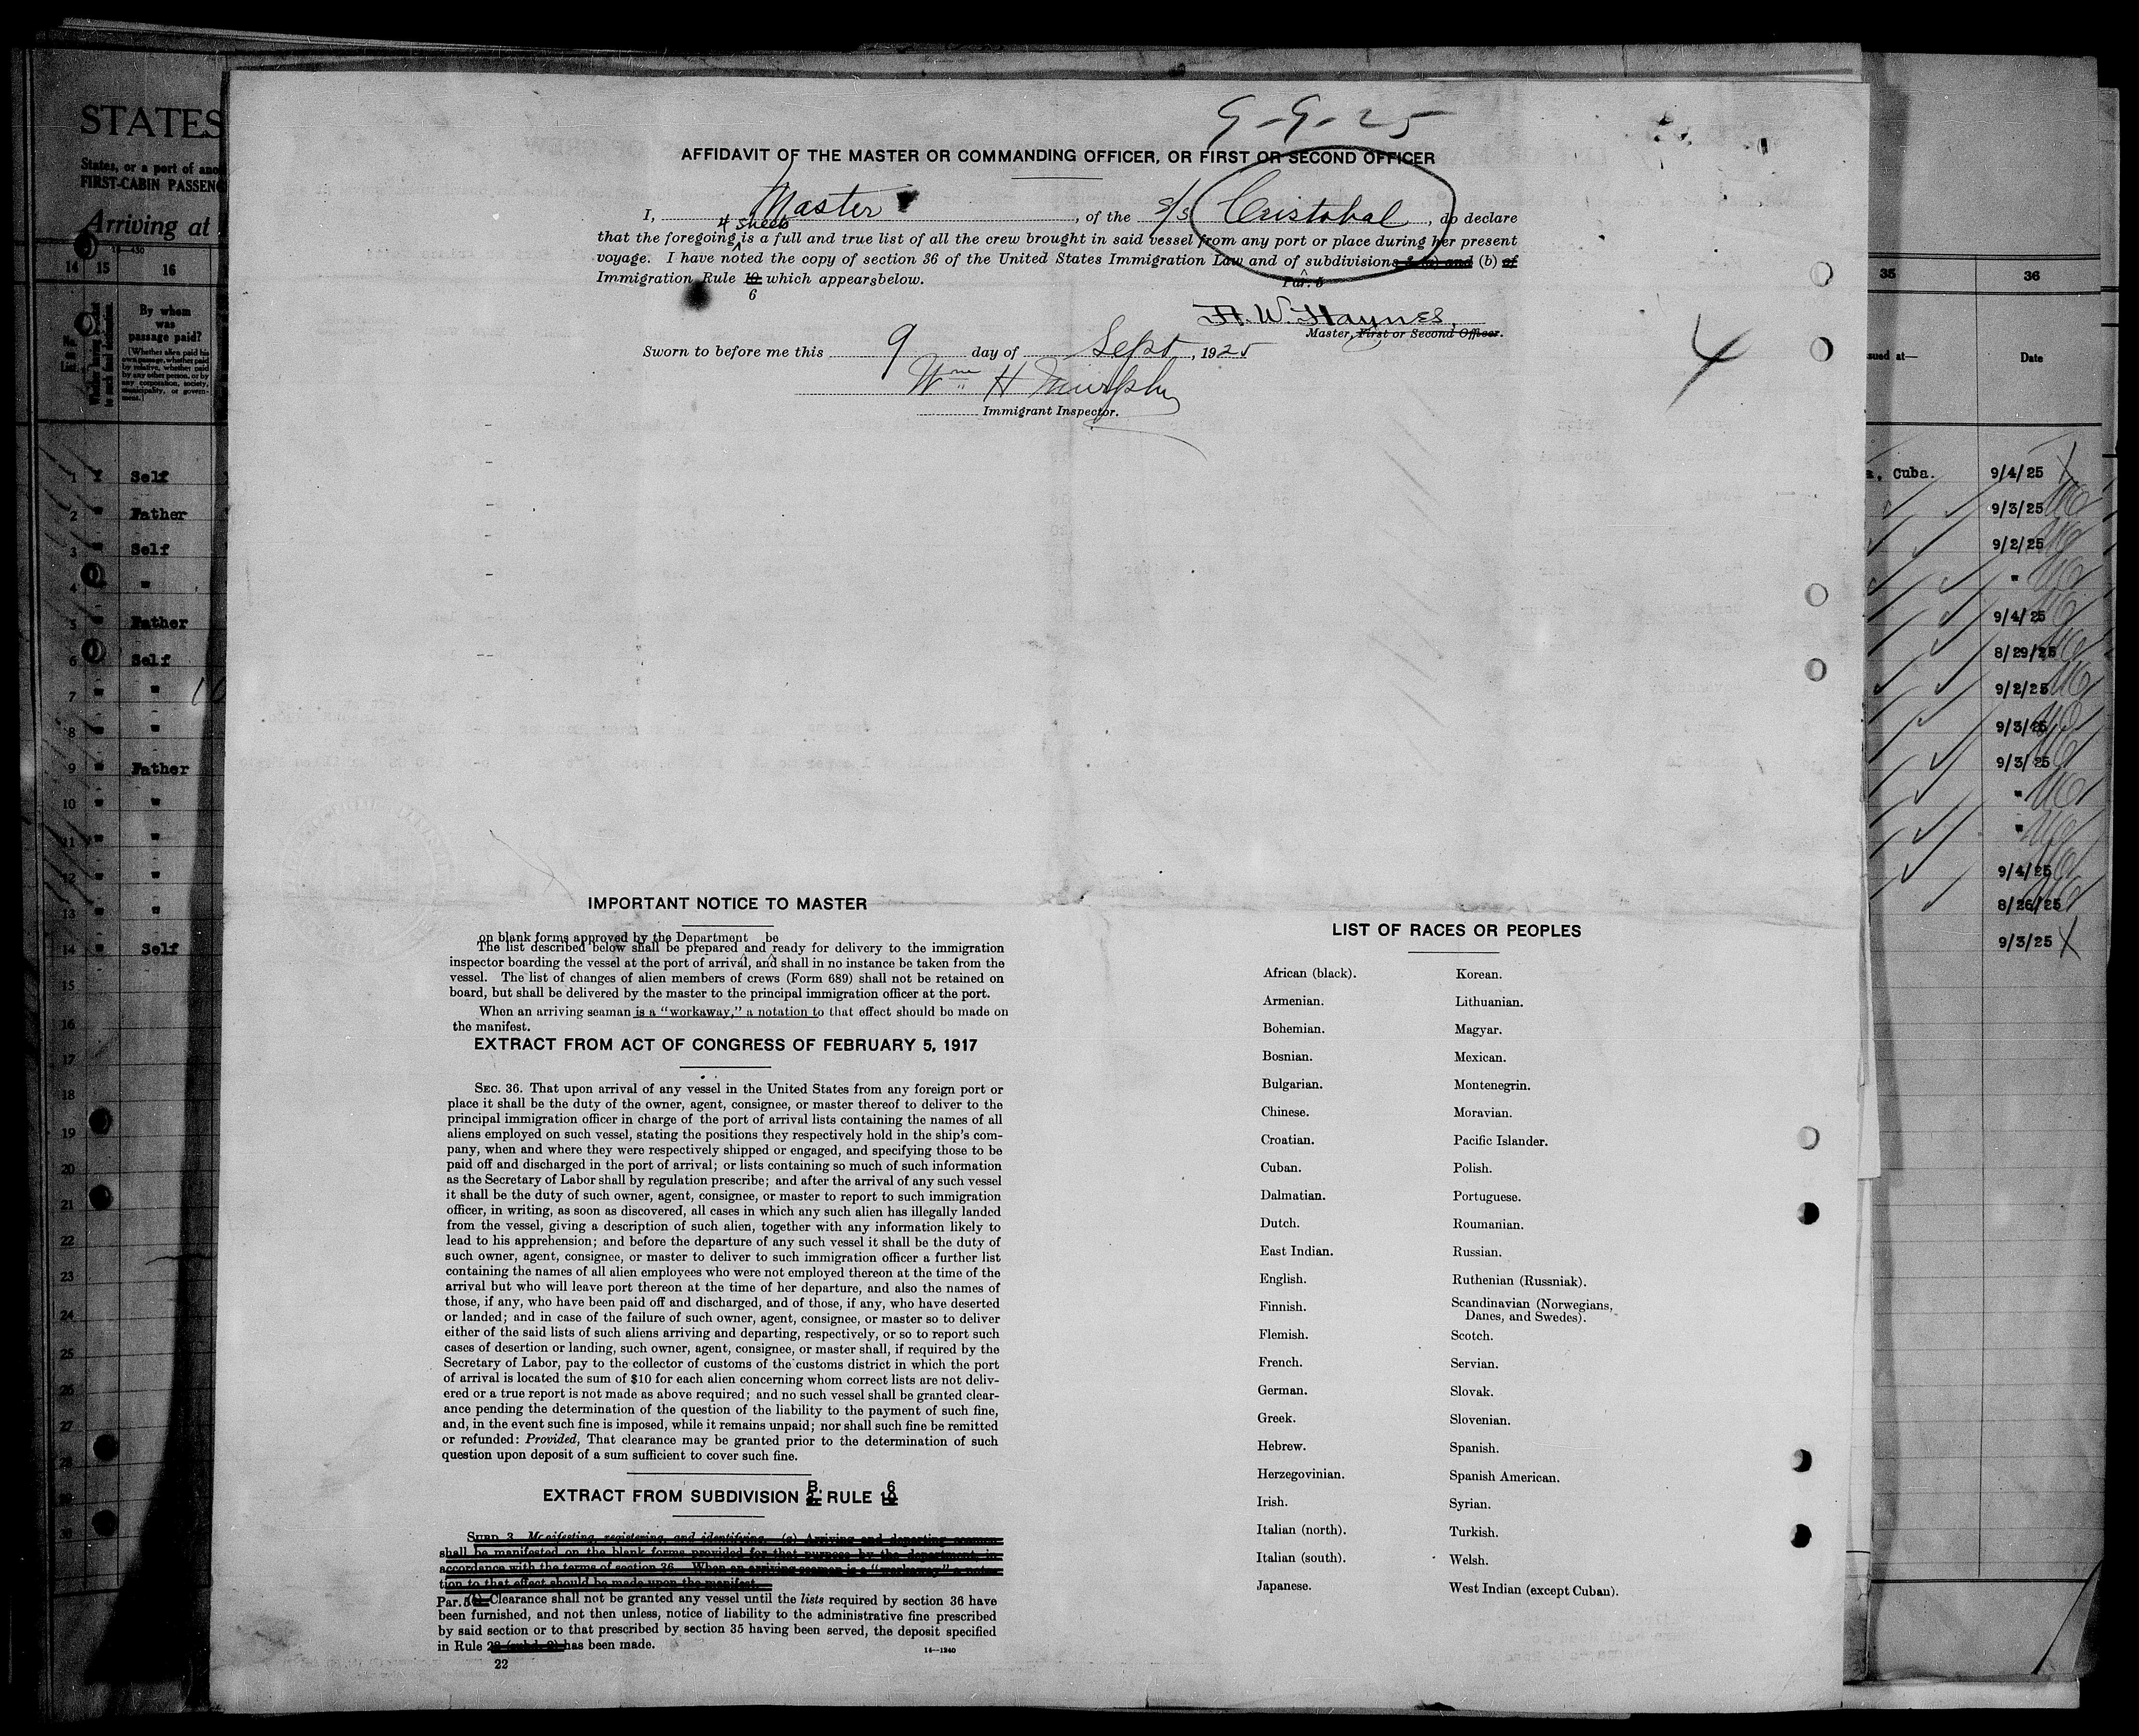 9-9-25
AFFIDAVIT OF THE MASTER OR COMMANDING OFFICER, OR FIRST OR SECOND OFFICER
I, Master, of the S/S Cristobal, do declare
4 sheets
that the foregoing is a full and true list of all the crew brought in said vessel from any port or place during her present
voyage. I have noted the copy of section 36 of the United States Immigration Law and of subdivisions 3 (a) and (b) of
Par. 5
Immigration Rule 10 which appears below.
6
H. W. Haynes
Master, First or Second Officer.
Sworn to before me this 9 day of Sept, 1925
Wm H Murphy
Immigrant Inspector.
4
IMPORTANT NOTICE TO MASTER
on blank forms approved by the Department be
The list described below shall be prepared and ready for delivery to the immigration
inspector boarding the vessel at the port of arrival, and shall in no instance be taken from the
vessel. The list of changes of alien members of crews (Form 689) shall not be retained on
board, but shall be delivered by the master to the principal immigration officer at the port.
When an arriving seaman is a "workaway," a notation to that effect should be made on
the manifest.
EXTRACT FROM ACT OF CONGRESS OF FEBRUARY 5, 1917
SEC. 36. That upon arrival of any vessel in the United States from any foreign port or
place it shall be the duty of the owner, agent, consignee, or master thereof to deliver to the
principal immigration officer in charge of the port of arrival lists containing the names of all
aliens employed on such vessel, stating the positions they respectively hold in the ship's com-
pany, when and where they were respectively shipped or engaged, and specifying those to be
paid off and discharged in the port of arrival; or lists containing so much of such information
as the Secretary of Labor shall by regulation prescribe; and after the arrival of any such vessel
it shall be the duty of such owner, agent, consignee, or master to report to such immigration
officer, in writing, as soon as discovered, all cases in which any such alien has illegally landed
from the vessel, giving a description of such alien, together with any information likely to
lead to his apprehension; and before the departure of any such vessel it shall be the duty of
such owner, agent, consignee, or master to deliver to such immigration officer a further list
containing the names of all alien employees who were not employed thereon at the time of the
arrival but who will leave port thereon at the time of her departure, and also the names of
those, if any, who have been paid off and discharged, and of those, if any, who have deserted
or landed; and in case of the failure of such owner, agent, consignee, or master so to deliver
either of the said lists of such aliens arriving and departing, respectively, or so to report such
cases of desertion or landing, such owner, agent, consignee, or master shall, if required by the
Secretary of Labor, pay to the collector of customs of the customs district in which the port
of arrival is located the sum of $10 for each alien concerning whom correct lists are not deliv-
ered or a true report is not made as above required; and no such vessel shall be granted clear-
ance pending the determination of the question of the liability to the payment of such fine,
and, in the event such fine is imposed, while it remains unpaid; nor shall such fine be remitted
or refunded: Provided, That clearance may be granted prior to the determination of such
question upon deposit of a sum sufficient to cover such fine.
B. 6
EXTRACT FROM SUBDIVISION 3, RULE 10
SUBD. 3. Manifesting, registering, and identifying. (a) Arriving and departing seamen
shall be manifested on the blank forms provided for that purpose by the department, in
accordance with the terms of section 36. When an arriving seaman is a "workaway" a nota-
tion to that effect should be made upon the manifest.
Par. 5 Clearance shall not be granted any vessel until the lists required by section 36 have
been furnished, and not then unless, notice of liability to the administrative fine prescribed
by said section or to that prescribed by section 35 having been served, the deposit specified
in Rule 28 (subd. 2) has been made.
22
14—1240
LIST OF RACES OR PEOPLES
African (black).
Armenian.
Bohemian.
Bosnian.
Bulgarian.
Chinese.
Croatian.
Cuban.
Dalmatian.
Dutch.
East Indian.
English.
Finnish.
Flemish.
French.
German.
Greek.
Hebrew.
Herzegovinian.
Irish.
Italian (north).
Italian (south).
Japanese.
Korean.
Lithuanian.
Magyar.
Mexican.
Montenegrin.
Moravian.
Pacific Islander.
Polish.
Portuguese.
Roumanian.
Russian.
Ruthenian (Russniak).
Scandinavian (Norwegians,
Danes, and Swedes).
Scotch.
Servian.
Slovak.
Slovenian.
Spanish.
Spanish American.
Syrian.
Turkish.
Welsh.
West Indian (except Cuban).
STATES
States, or a port of
FIRST-CABIN
Arriving at
14 15 16
By whom
was
passage paid?
[Whether alien paid his
own passage, whether paid
by relative, whether paid
by any other person, or by
any corporation, society,
municipality, or govern-
ment.]
1 Self
2 " Father
3 " Self
4 "
5 " Father
6 " Self
7 " "
8 " "
9 " Father
10 " "
11 " "
12 " "
13 " "
14 " Self
15
16
17
18
19
20
21
22
23
24
25
26
27
28
35 36
at— Date
Cuba. 9/4/25
9/3/25
9/2/25
"
9/4/25
8/29/25
9/2/25
9/3/25
9/3/25
"
"
9/4/25
8/26/25
9/3/25